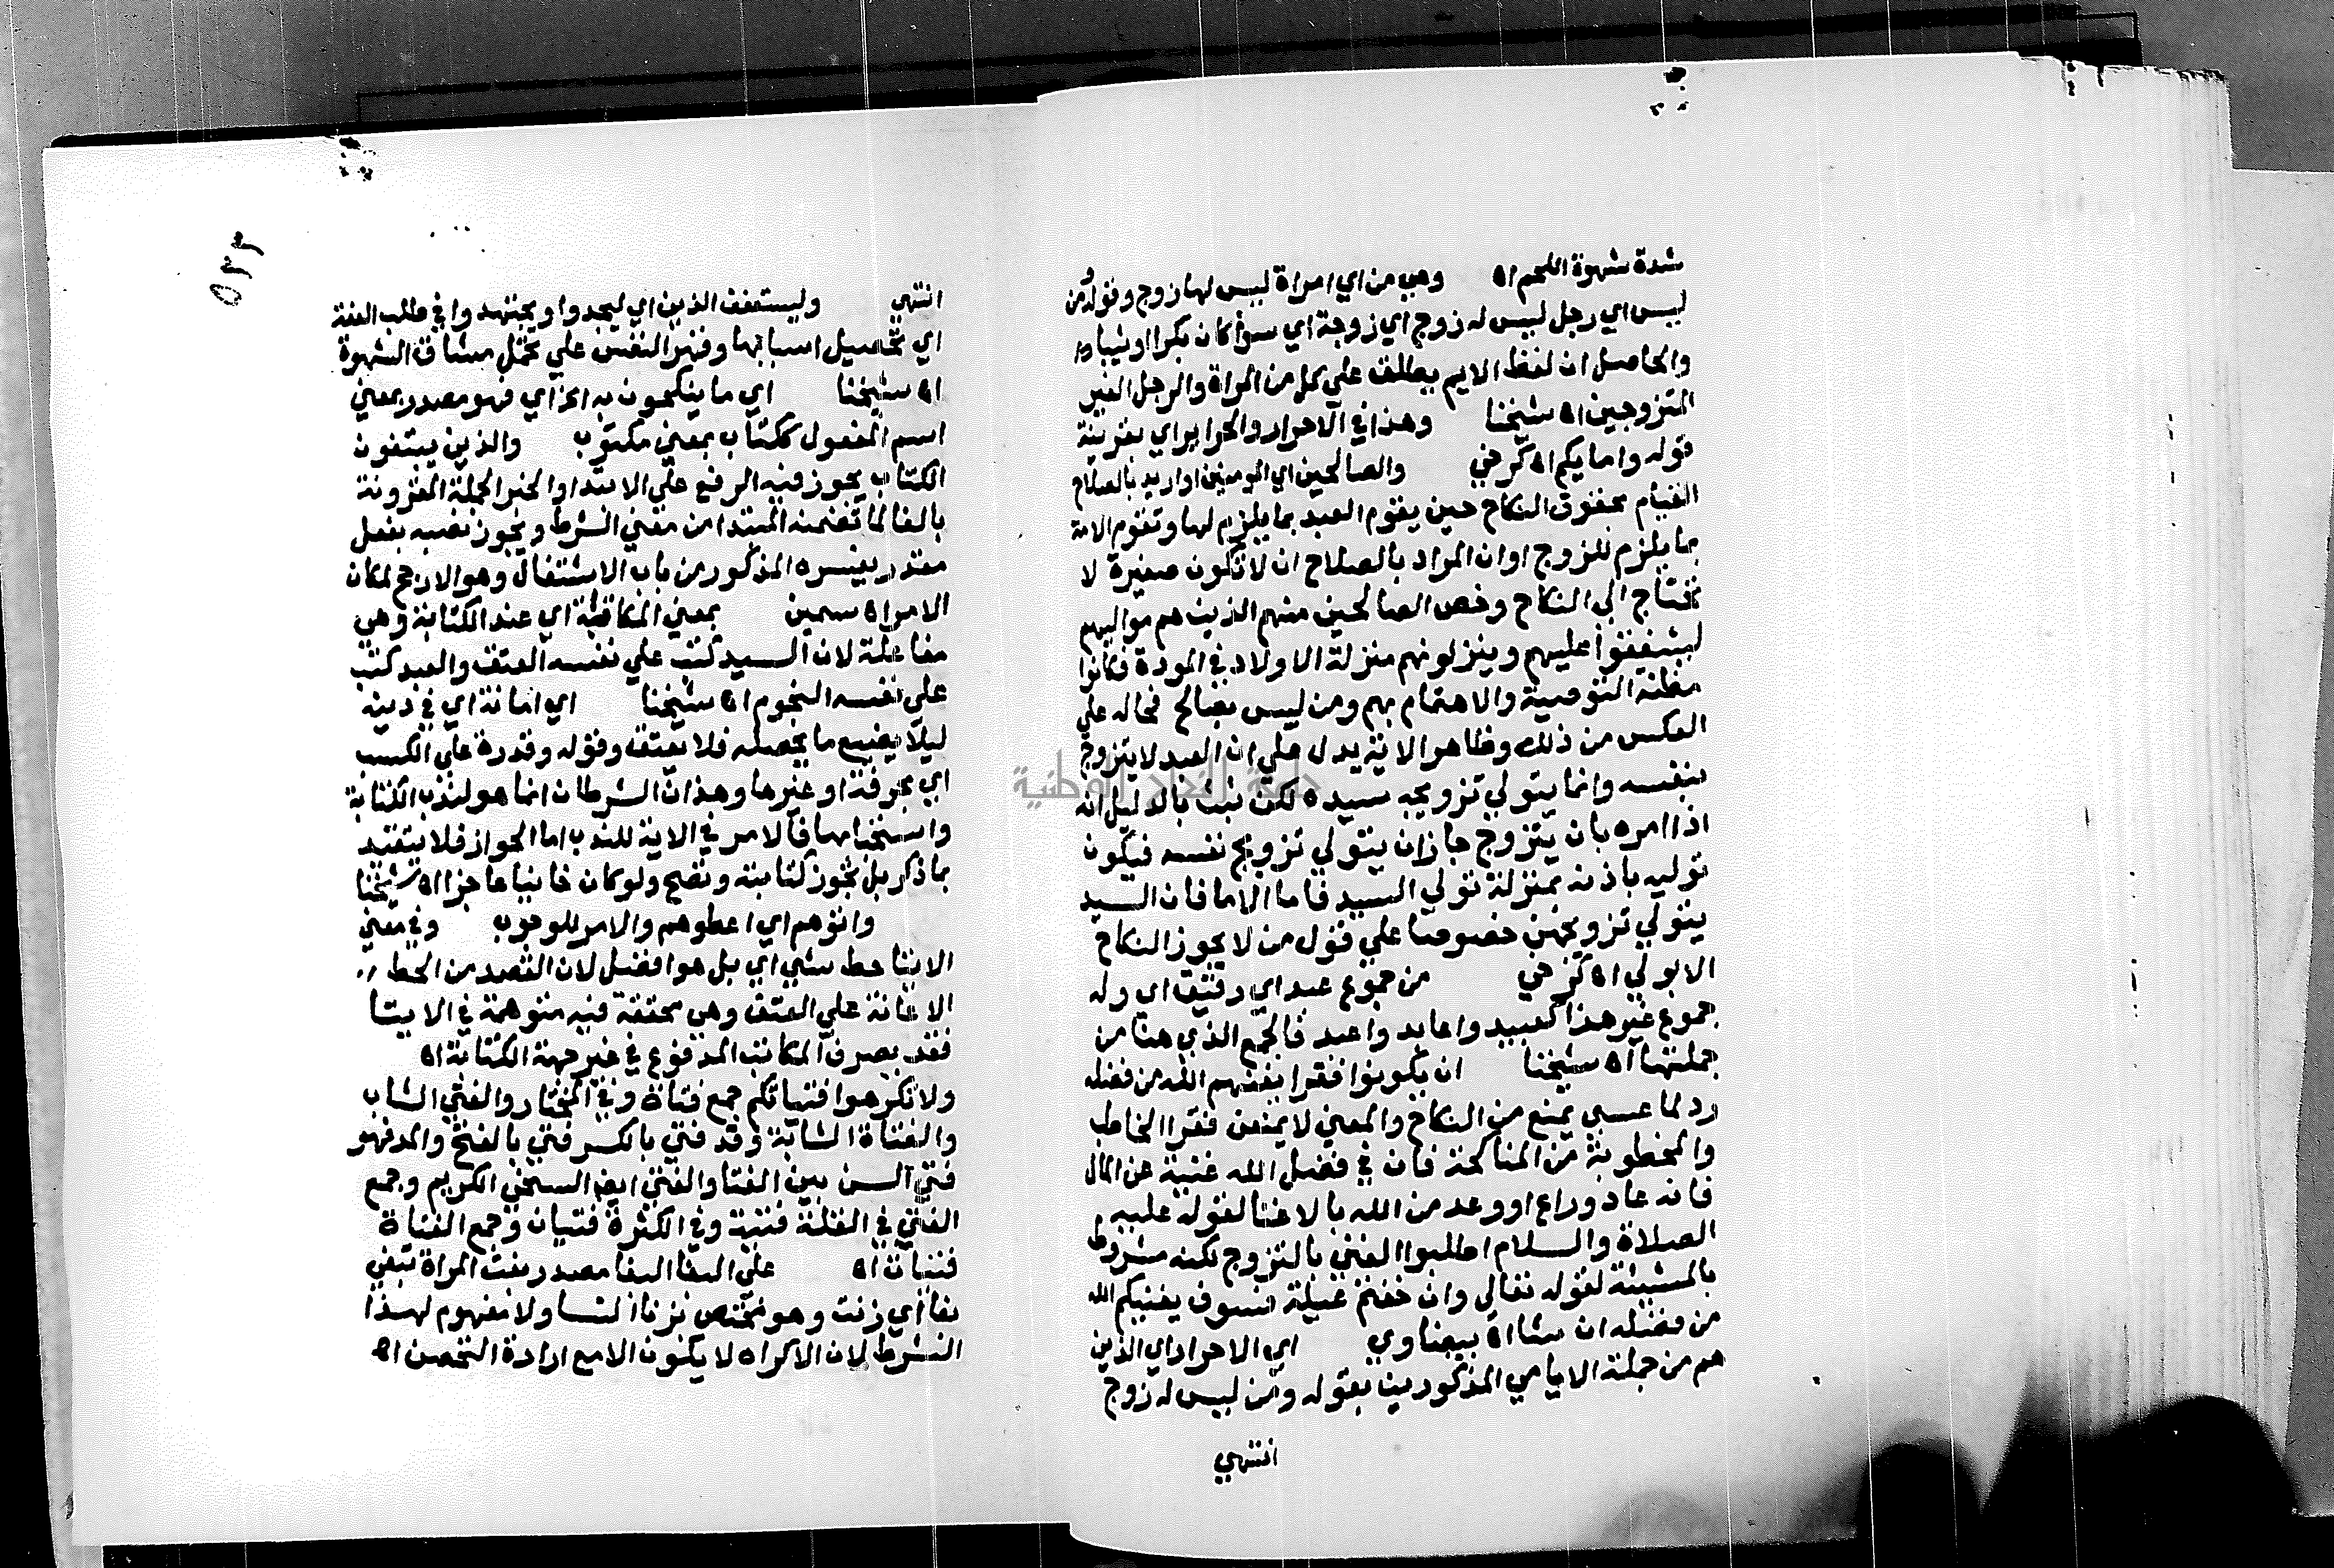 شدة شهوة اللحم اه وهي من اي امراة ليس لها زوج وقوله ومن
ليس اي رجل ليس له زوج اي زوجة اي سوا كان بكرا او ثيبا
والحاصل ان لفظ الايم يطلق علي كل من المراة والرجل الغير
المتزوجين اه شيخنا وهذا في الاحرار والحراير اي بقرينة
قوله وامايكم اه كرخي والصالحين اي المومنين او اريد بالصلاح
القيام بحقوق النكاح حين يقوم العبد بما يلزم لها وتقوم الامة
بما يلزم للزوج او ان المراد بالصلاح ان لا تكون صغيرة لا
تحتاج الي النكاح وخص الصالحين منهم الذين هم مواليهم
ليشفقوا عليهم وينزلونهم منزلة الاولاد في المودة فكانوا
مظنة التوصية والاهتمام بهم ومن ليس بصالح فحاله علي
العكس من ذلك وظاهر الاية يدل علي ان العبد لا يتزوج
بنفسه وانما يتولي تزويجه سيده لكن ثبت بالدليل انه
اذا امره بان يتزوج جاز ان يتولي تزويج نفسه فيكون
توليه باذنه بمنزلة تولي السيد فاما الاما فان السيد
يتولي تزويجهن خصوصا علي قول من لا يجوز النكاح
الا بولي اه كرخي من جموع عبد اي رقيق اي وله
جموع غير هذا كعبيد واعابد واعبد فالجمع الذي هنا من
جملتها اه شيخنا ان يكونوا فقرا يغنهم الله من فضله
رد لما عسي يمنع من النكاح والمعني لا يمنعن فقر الخاطب
والمخطوبة من المناكحة فان في فضل الله غنية عن المال
فانه غاد ورايح او وعد من الله بالاغنا لقوله عليه
الصلاة والسلام اطلبوا الغني بالتزوج لكنه مشروط
بالمشيئة لقوله تعالي وان خفتم عيلة فسوف يغنيكم الله
من فضله ان شا اه بيضاوي اي الاحرار اي الذين
هم من جملة الايامي المذكورين بقوله ومن ليس له زوج
انتهي
٥٢٢
انتهي وليستعفف الذين اي ليجدوا ويجتهدوا في طلب العفة
اي تحصيل اسبابها وقهر النفس علي تحمل مشاق الشهوة
اه شيخنا اي ما ينكحون به الخ اي فهو مصدر بمعني
اسم المفعول ككتاب بمعني مكتوب والذين يبتغون
الكتاب يجوز فيه الرفع علي الابتدا والخبر الجملة المقرونة
بالفا لما تضمنه المبتدا من معني الشرط ويجوز نصبه بفعل
مقدر يفسره المذكور من باب الاشتغال وهو الارجح لمكان
الامر اه سمين بمعني المكاتبة اي عند الكتابة وهي
مفاعلة لان السيد كتب علي نفسه العتق والعبد كتب
علي نفسه النجوم اه شيخنا اي امانة اي في دينه
ليلا يضيع ما يحصله فلا يعتق وقوله وقدرة علي الكسب
اي بحرفة او غيرها وهذان الشرطان انما هو لندب الكتابة
واستحبابها فالامر في الاية للندب اما الجواز فلا يتقيد
بما ذكر بل تجوز كتابته وتصح ولو كان خاينا عاجزا اه شيخنا
واتوهم اي اعطوهم والامر للوجوب وفي معني
الايتا حط شي اي بل هو افضل لان القصد من الحط
الاعانة علي العتق وهي محققة فيه متوهمة في الايتا
فقد يصرف المكاتب المدفوع في غير جهة الكتابة اه
ولا تكرهوا فتياتكم جمع فتاة وفي المختار والفتي الشاب
والفتاة الشابة وقد فتي بالكسر فتي بالفتح والمد فهو
فتي السن بين الفتا والفتي ايضا السخي الكريم وجمع
الفتي في القلة فتية وفي الكثرة فتيان وجمع الفتاة
فتيات اه علي البغا البغا مصدر بغت المراة تبغي
بغا اي زنت وهو مختص بزنا النسا ولا مفهوم لهذا
الشرط لان الاكراه لا يكون الا مع ارادة التحصن اه